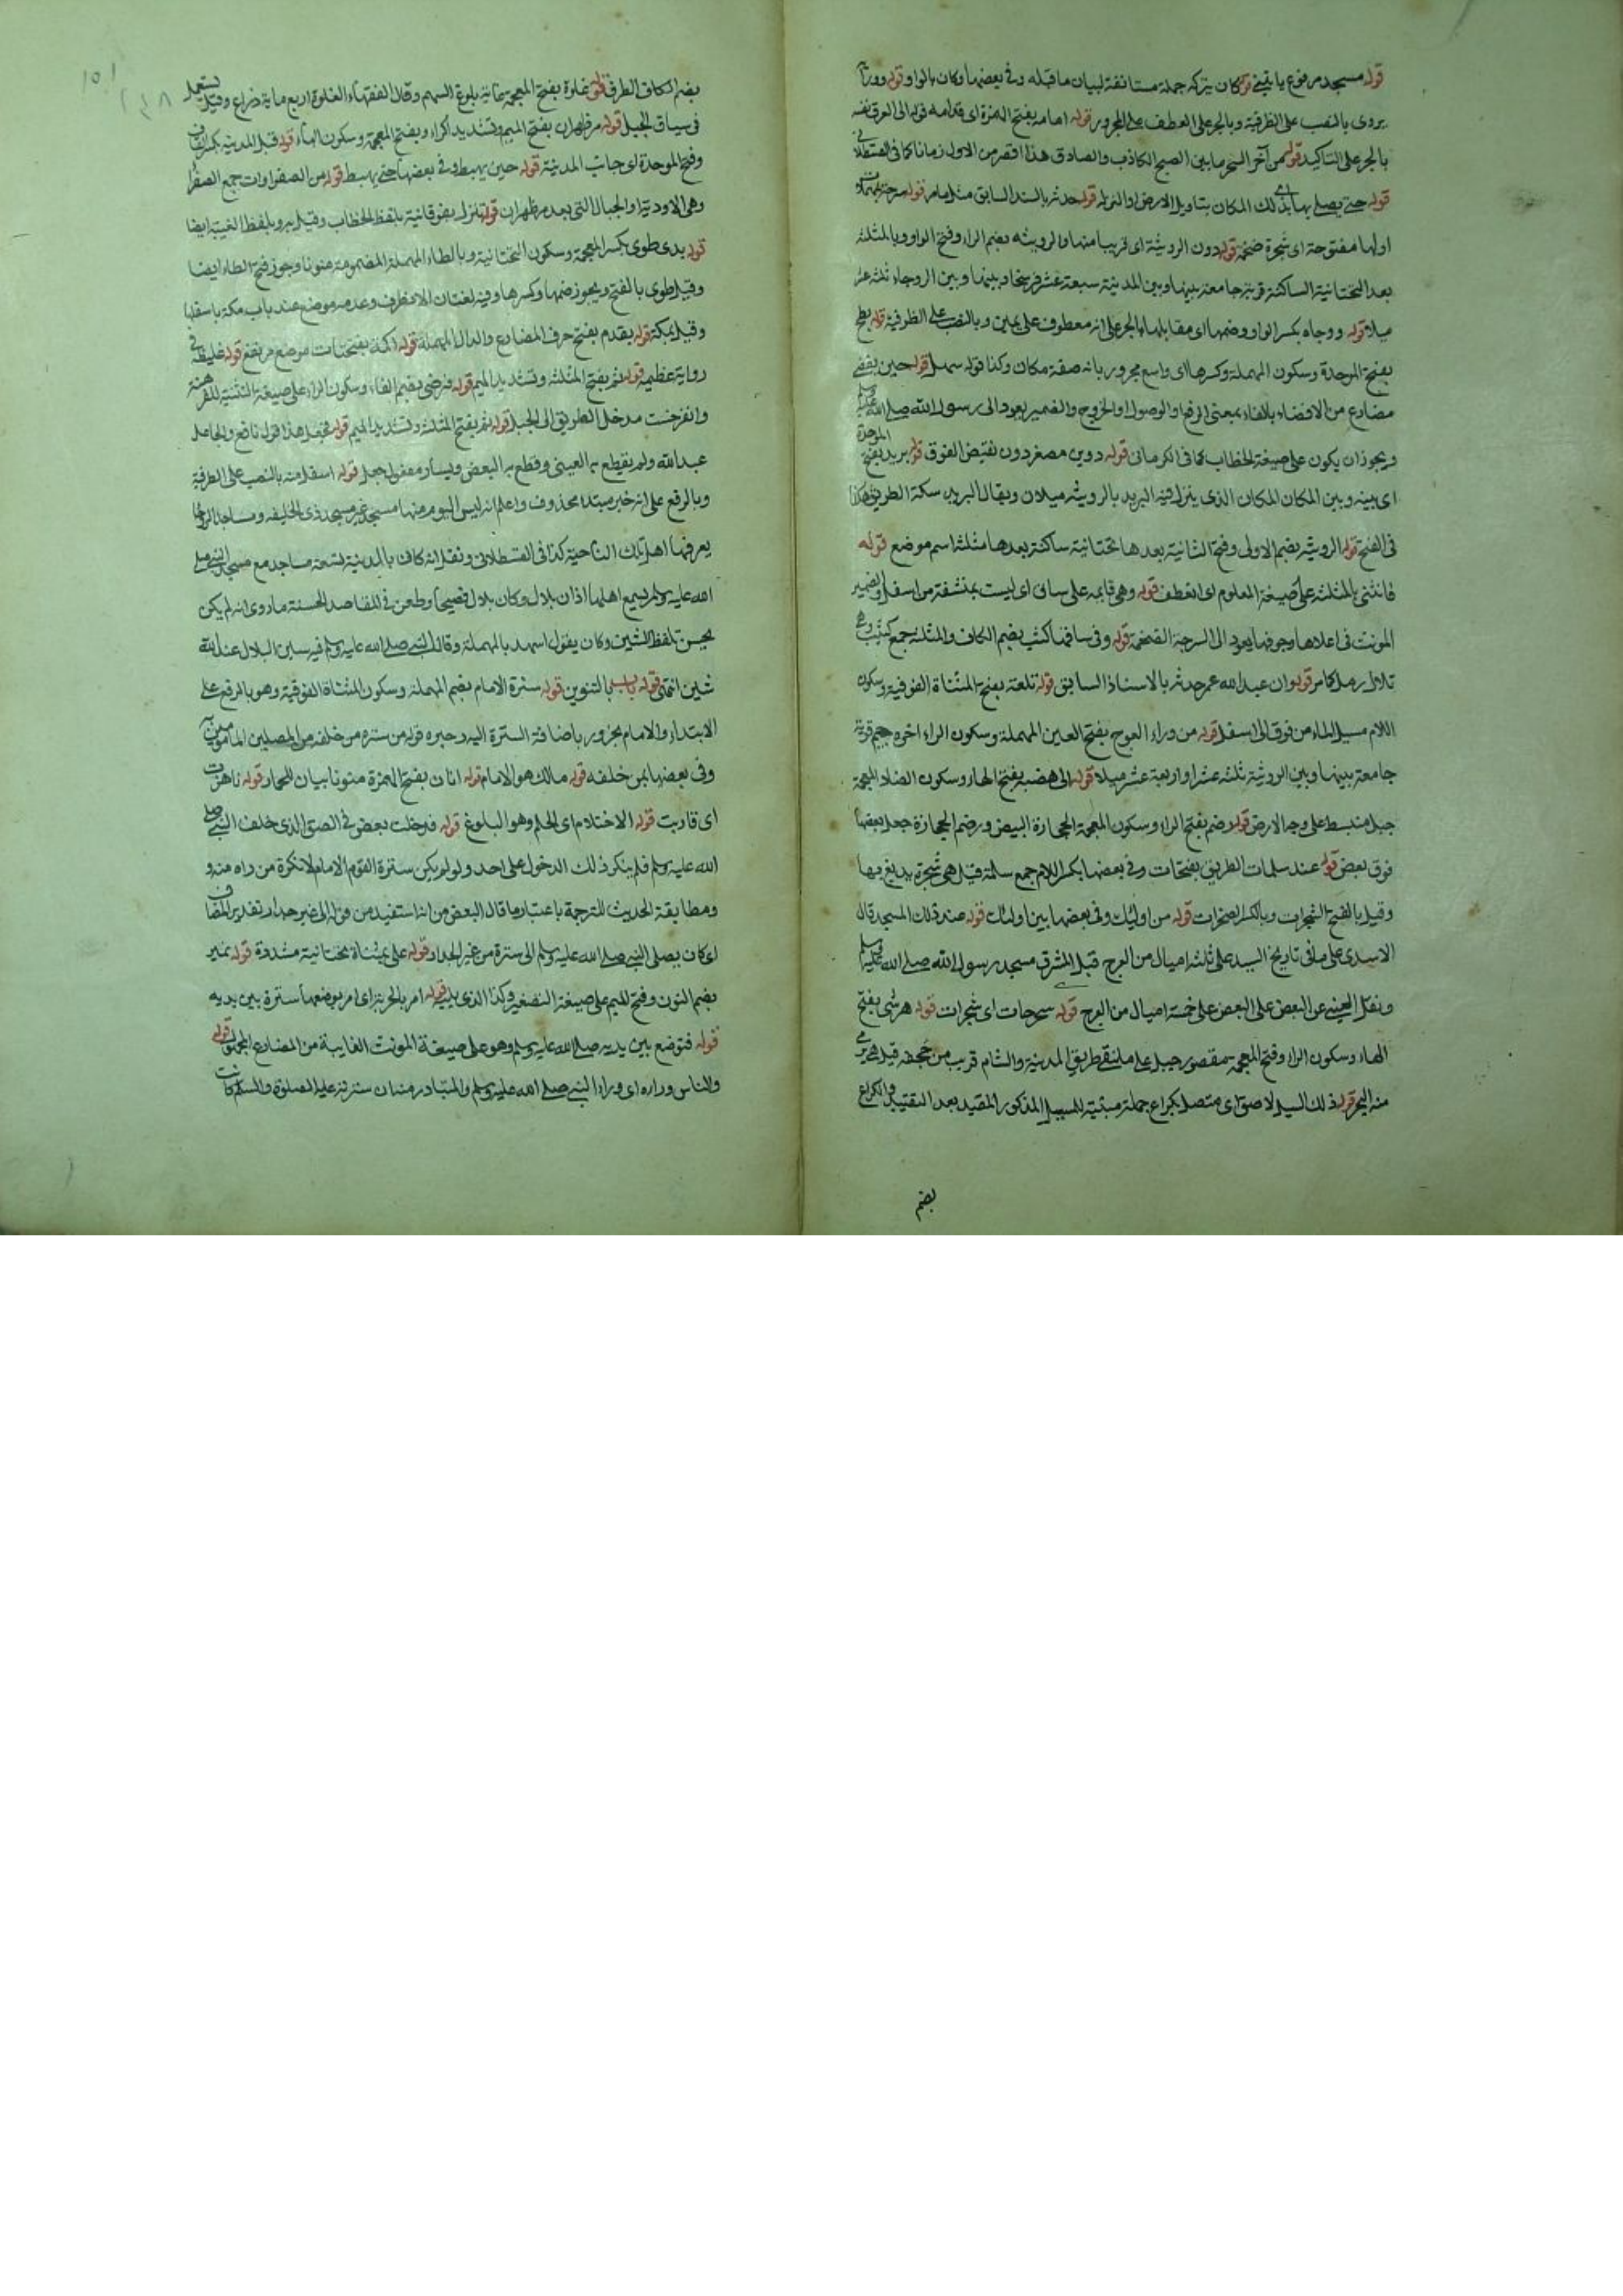 قوله مسجد مرفوع يا يتيغ قوله كان يتركه جملة مستانفة لبيان ما قبله وفي بعضها وكان بالواو قوله ووراءه
يروى بالنصب على الظرفية وبالجر على العطف على المجرور قوله امامه بفتح الهمزة اى قدامه قوله الى العرق نفسه
بالجر على التاكيد قوله من آخر السحر ما بين الصبح الكاذب والصادق هذا اقصر من الاول زمانا كما في القسطلانى
قوله حتى يصلى بها اى بذلك المكان بتاويل الارض او النزلة قوله حدثه بالسند السابق مثل ما مر قوله سرحة بمهملات
اولها مفتوحة اى شجرة ضخمة قوله دون الرويثة اى قريبا منها والرويثة بضم الراء وفتح الواو وبالمثلثة
بعد التحتانية الساكنة قرية جامعة بينها وبين المدينة سبعة عشر فرسخا وبينها وبين الروحاء ثلثة عشر
ميلا قوله ووجاه بكسر الواو وضمها اى مقابلها بالجر على انه معطوف على يمين وبالنصب على الظرفية قوله بطح
بفتح الموحدة وسكون المهملة وكسرها اى واسع مجرور بانه صفة مكان وكذا قوله سهل قوله حين يفضى
مضارع من الافضاء بالفاء بمعنى الدفع او الوصول او الخروج والضمير يعود الى رسول الله صلى الله عليه وسلم
ويجوز ان يكون على صيغة الخطاب كما فى الكرمانى قوله دوين مصغر دون نقيض الفوق قوله بريد بفتح الموحدة
اى بينه وبين المكان المكان الذى ينزل فيه البريد بالرويثة ميلان ويقال البريد سكة الطريق كذا
فى الفتح قوله الرويثة بضم الاولى وفتح الثانية بعدها تحتانية ساكنة بعدها مثلثة اسم موضع قوله
فانثنى بالمثلثة على صيغة المعلوم اى انعطف قوله وهى قايمة على ساق اى ليست بمنشقة من اسفل والضمير
المونث فى اعلاها وجوفها يعود الى السرحة الضخمة قوله وفى ساقها كثب بضم الكاف والمثلثة جمع كثيب وهى
تلال رمل كما مر قوله وان عبد الله عمر حدثه بالاسناد السابق قوله تلعة بفتح المثناة الفوقية وسكون
اللام مسيل الماء من فوق الى اسفل قوله من وراء العرج بفتح العين المهملة وسكون الراء اخره جيم قرية
جامعة بينها وبين الرويثة ثلثة عشر او اربعة عشر ميلا قوله الى هضبة بفتح الهاء وسكون الضاد المعجمة
جبل منبسط على وجه الارض قوله رضم بفتح الراء وسكون المعجمة الحجارة البيض ورضم الحجارة جعل بعضها
فوق بعض قوله عند سلمات الطريق بفتحات وفى بعضها بكسر اللام جمع سلمة قيل هى شجرة يدبغ بها
وقيل بالفتح الشجرات وبالكسر الصخرات قوله من اوليك وفى بعضها بين اوليك قوله عند ذلك المسجد قال
الاسدى على ما فى تاريخ السيد على ثلثة اميال من العرج قبل المشرق مسجد رسول الله صلى الله عليه وسلم
ونقل العينى عن البعض على البعض على خمسة اميال من العرج قوله سرحات اى شجرات قوله هرشى بفتح
الهاء وسكون الراء وفتح المعجمة مقصور جبل على ملتقى طريق المدينة والشام قريب من جحفة قيل هى يرى
منه البحر قوله ذلك المسيل لاصق اى متصل بكراع جملة مبينة للمسيل المذكور المقيد بعد التقييد والكراع
بضم
بضم الكاف الطرف قوله غلوة بفتح المعجمة غاية بلوغ السهم وقال الفقهاء الغلوة اربع ماية ذراع وقيل يستعمل
فى سباق الخيل قوله مر ظهران بفتح الميم وتشديد الراء وبفتح المعجمة وسكون الهاء قوله قبل المدينة بكسر القاف
وفتح الموحدة اى جانب المدينة قوله حين يهبط وفى بعضها حتى يهبط قوله من الصفراوات جمع الصفراء
وهى الاودية او الجبال التى بعد مر ظهران قوله تنزل بفوقانية بلفظ الخطاب وقيل يروى بلفظ الغيبة ايضا
قوله بذى طوى بكسر المعجمة وسكون التحتانية وبالطاء المهملة المضمومة منونا وجوز فتح الطاء ايضا
وقيل طوى بالفتح ويجوز ضمها وكسرها وفيه لغتان الصرف وعدمه موضع عند باب مكة باسفلها
وقيل بمكة قوله يقدم بفتح حرف المضارع والدال المهملة قوله اكمة بفتحتات موضع مرتفع قوله غليظة فى
رواية عظيمة قوله ثم بفتح المثلثة وتشديد الميم قوله فرضتى بضم الفاء وسكون الراء على صيغة التثنية للفرضة
وانفرضت مدخل الطريق الى الجبل قوله ثم بفتح المثلثة وتشديد الميم قوله فجعل هذا قول نافع والجاعل
عبد الله ولم يقطع به العينى وقطع به البعض ويسار مفعول جعل قوله اسفل منه بالنصب على الظرفية
وبالرفع على انه خبر مبتدا محذوف واعلم انه ليس اليوم منها مسجد غير مسجد ذى الحليفة ومساجد الروحاء
يعرفها اهل تلك الناحية كذا فى القسطلانى ونقل انه كان بالمدينة تسعة مساجد مع مسجد النبى صلى
الله عليه وسلم يسمع اهلها اذان بلال وكان بلال فصيحا وطعن فى المقاصد الحسنة ما روى انه لم يكن
يحسن تلفظ الشين وكان يقول اسهد بالمهملة وقال النبى صلى الله عليه وسلم فيه سين البلال عند الله
شين انتهى قوله باب بالتنوين قوله سترة الامام بضم المهملة وسكون المثناة الفوقية وهو بالرفع على
الابتداء والامام مجرور باضافة السترة اليه وخبره قوله من ستره من خلفه من المصلين المامومين
وفى بعضها لمن خلفه قوله مالك هو الامام قوله اتان بفتح الهمزة منونا بيان للحمار قوله ناهزت
اى قاربت قوله الاحتلام اى الحلم وهو البلوغ قوله فدخلت بعض فى الصف الذى خلف النبى صلى
الله عليه وسلم فلم ينكر ذلك الدخول على احد ولو لم يكن سترة القوم الامام لانكره من راه منه و
ومطابقة الحديث للترجمة باعتبار ما قال البعض من انه استفيد من قوله الى غير جدار تقدير المضاف
اى كان يصلى النبى صلى الله عليه وسلم الى سترة من غير الجدار قوله على بمثناة تحتانية مشددة قوله نمير
بضم النون وفتح الميم على صيغة التصغير وكذا الذى يليه قوله امر بالحربة اى امر بوضعها سترة بين يديه
قوله فتوضع بين يديه صلى الله عليه وسلم وهو على صيغة المونث الغايبة من المضارع المجهول قوله
والناس وراءه اى وراء النبى صلى الله عليه وسلم والمتبادر منه ان سترته عليه الصلوة والسلام كانت